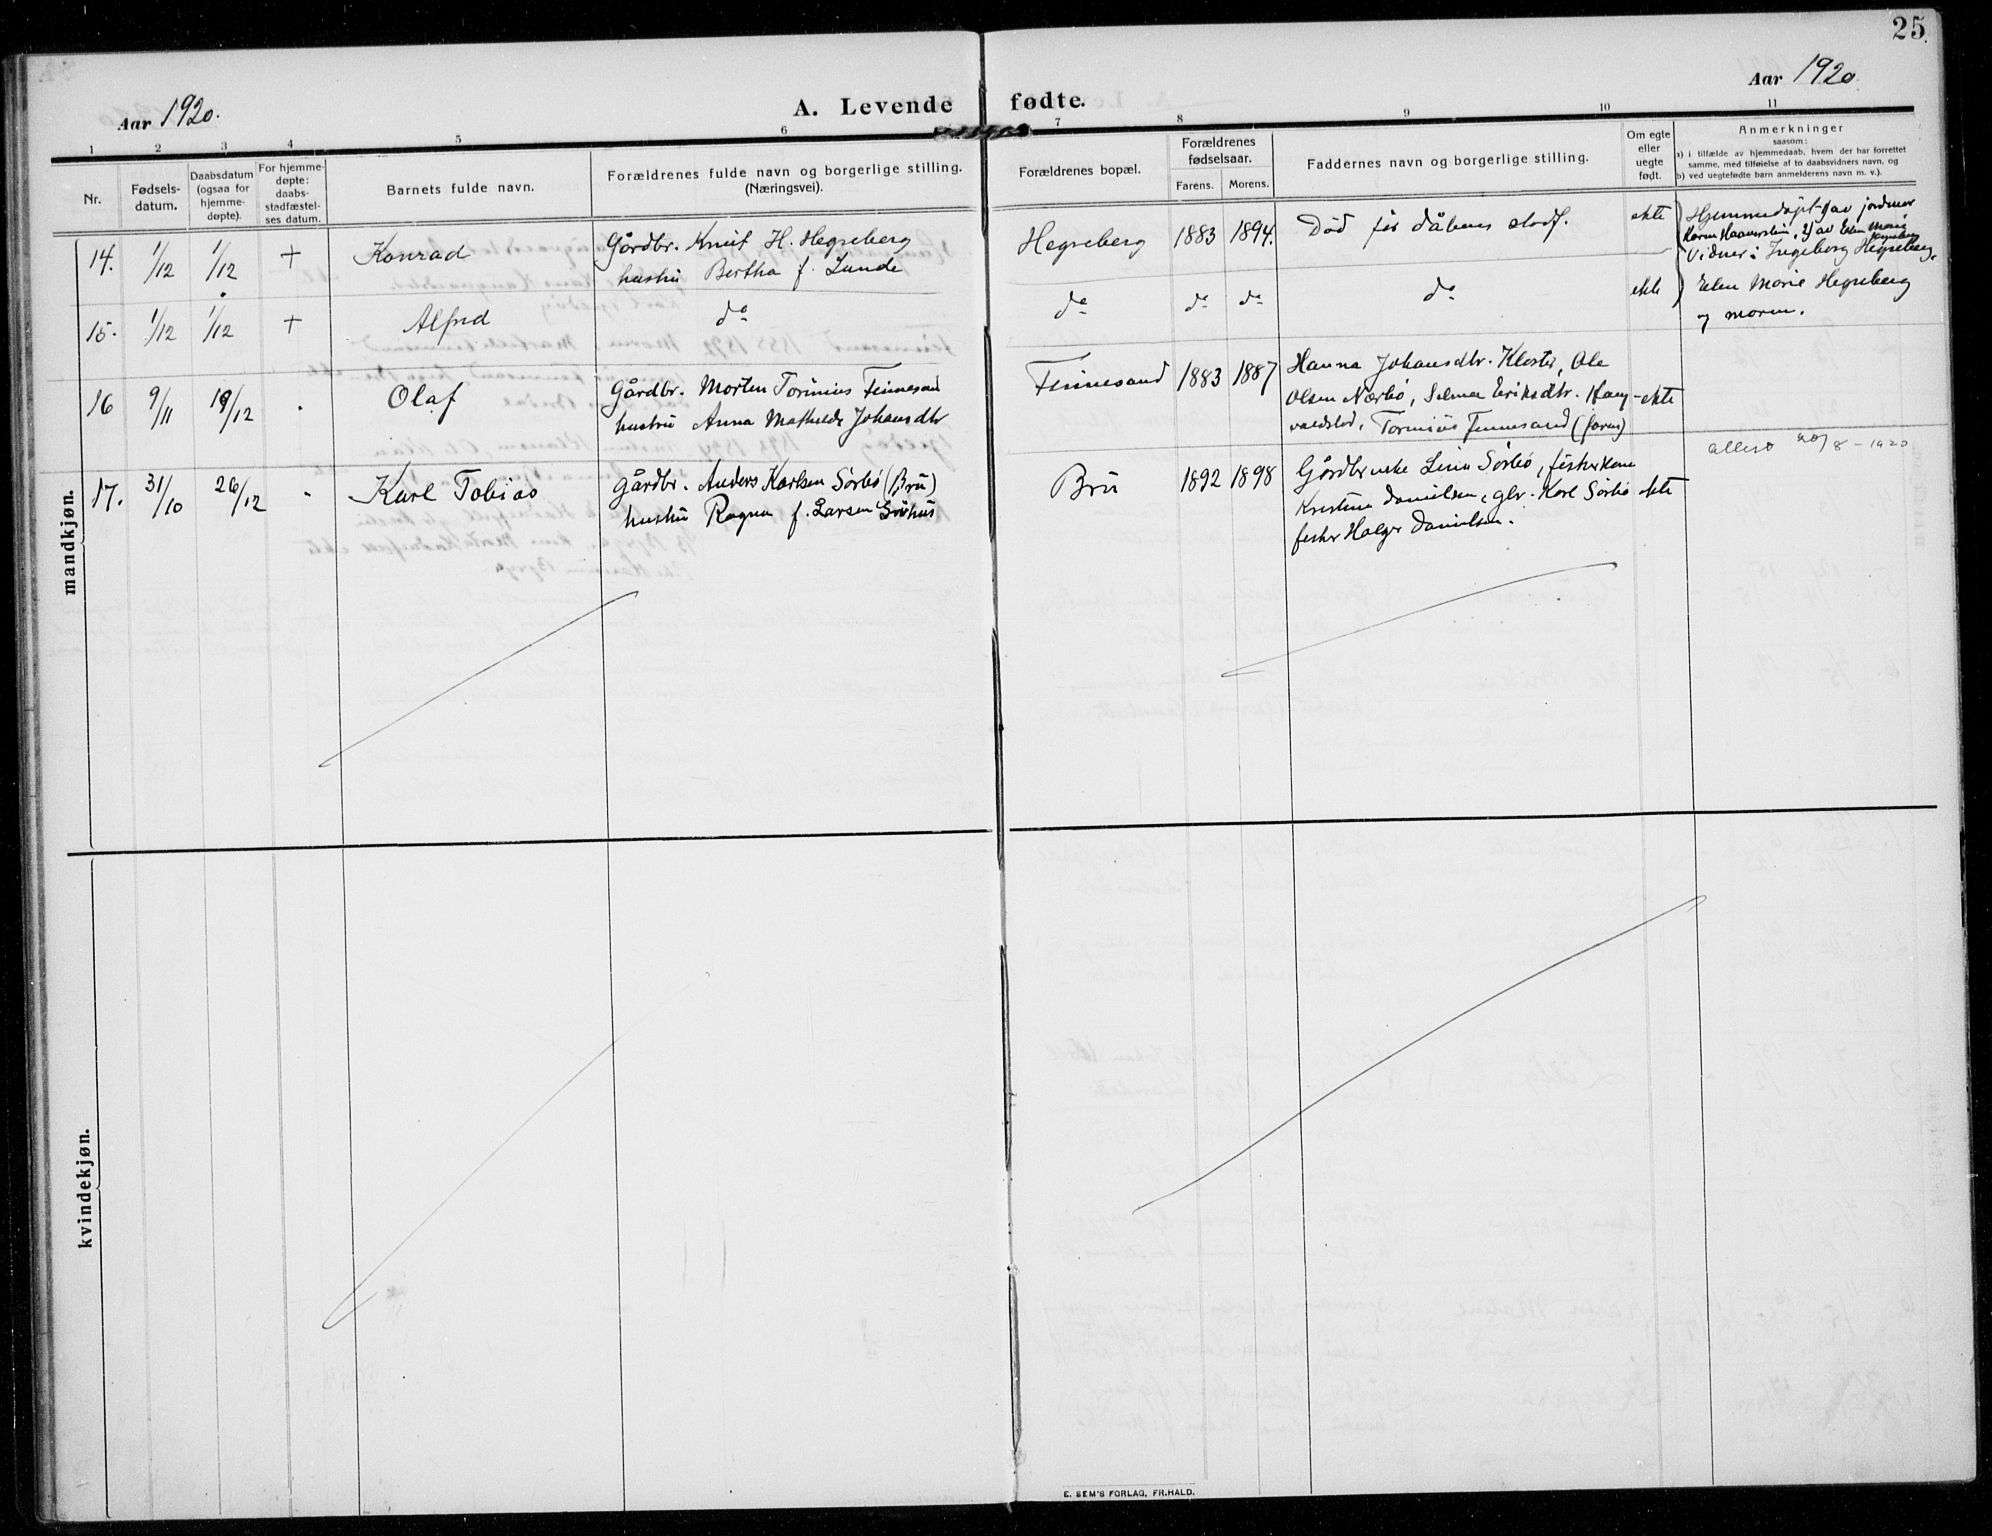 25
Aar 1920.
A. Levende fødte.
Aar 1920.
1 2 3 4 5 6 7 8 9 10 11
Nr.
Fødsels-
datum.
Daabsdatum
(ogsaa for
hjemme-
døpte).
For hjemme-
døpte:
daabs-
stadfæstel-
ses datum.
Barnets fulde navn.
Forældrenes fulde navn og borgerlige stilling.
(Næringsvei).
Forældrenes bopæl.
Forældrenes
fødselsaar.
Farens. Morens.
Faddernes navn og borgerlige stilling.
Om egte
eller
uegte
født.
Anmerkninger
saasom:
a) i tilfælde av hjemmedaab, hvem der har forrettet
samme, med tilføielse af to daabsvidners navn, og
b) ved uegtefødte barn anmelderens navn m. v.).
mandkjøn.
14. 1/12 1/12 + Konrad
Gårdbr. Knut H. Hegreberg
hustru Bertha f. Lunde
Hegreberg 1883 1894.
Død før dåbens stadf.
ekte
Hjemmedøpt 1) av jordmor
Karen 2) av Elen Marie
Hegreberg
Vidner: Ingeborg Hegreberg,
Elen Marie Hegreberg
og moren.
15. 1/12 1/12 + Alfred
do
do do do do ekte
16 9/11 19/12 . Olaf
Gårdbr. Morten Torinius Finnesand
hustru Anna Mathilde Johansdtr
Finnesand 1883 1887
Hanna Johansdtr. Kloster, Ole
Olsen Nærbø, Selma Eriksdtr. Haug-
valdstad, Torinius Finnesand (faren)
ekte
17. 31/10 26/12 . Karl Tobias
Gårdbr. Anders Karlsen Sørbø (Bru)
hustru Ragna f. Larsen Sørhus
Bru 1892 1898
Gårdbr.enke Lina Sørbø, fiskerkone
Kristine Danielsen, gbr. Karl Sørbø
fisker Holger Danielsen.
ekte
attest 20/8 - 1920
kvindekjøn.
E. SEM'S FORLAG, FR.HALD.